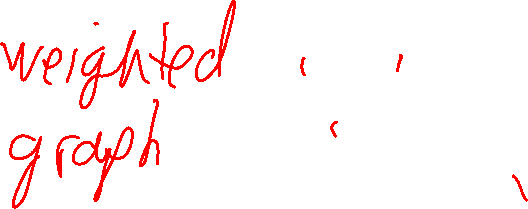 weighted
graph